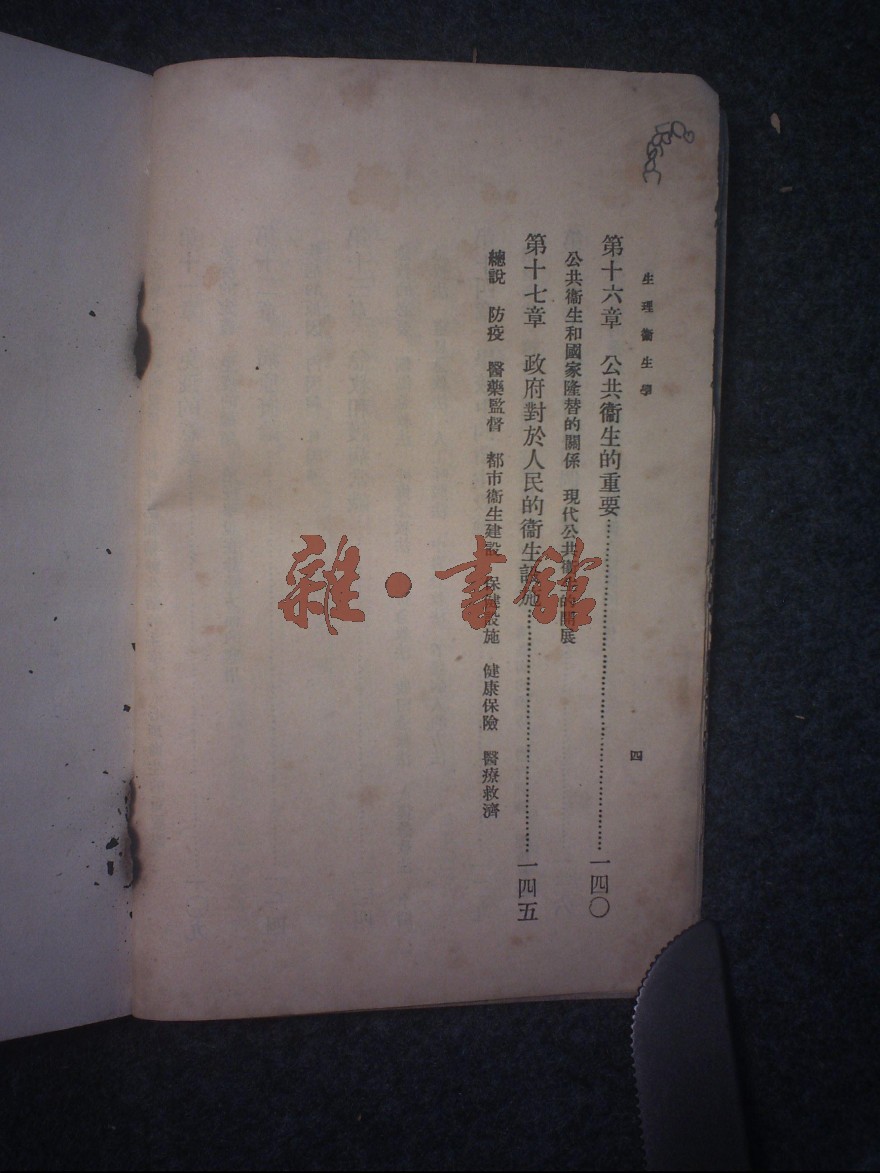 生理衞生學
四
第十六章　公共衞生的重要……一四〇
公共衞生和國家隆替的關係　現代公共衞生的開展
第十七章　政府對於人民的衞生設施……一四五
總說　防疫　醫藥監督　都市衞生建設　保健設施　健康保險　醫療救濟
雜·書館